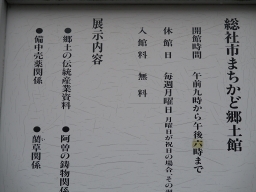 総社市まちかど郷土館
開館時間 午前九時から午後六時まで
休館日 毎週月曜日 月曜日が祝日の場合、その
入館料 無料
展示内容
●郷土の伝統産業資料 ●阿曽の鋳物関係
●備中売薬関係 ●藺草関係